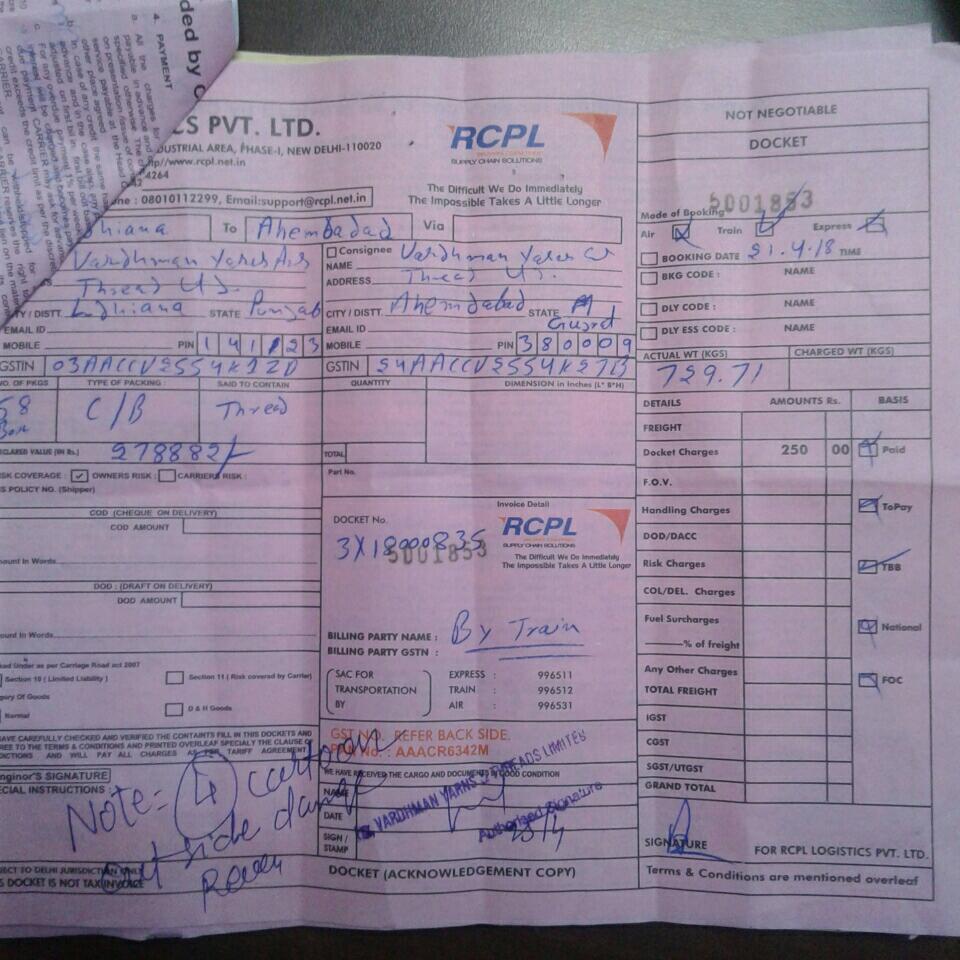 ded by C
4. PAYMENT
a. All the charges for
payable in advance and
specified otherwise. The c
on presentation/issue of
service payable at the Head
other place agreed
b. In case of any credit
advance and in the case
adjusted on first bill in
c. For any overdue payment
CS PVT. LTD.
DUSTRIAL AREA, PHASE-I, NEW DELHI-110020
http//www.rcpl.net.in
4264
ne : 08010112299, Email:support@rcpl.net.in
RCPL
SUPPLY CHAIN SOLUTIONS
The Difficult We Do Immediately
The Impossible Takes A Little Longer
NOT NEGOTIABLE
DOCKET
5001853
Mode of Booking
Air Train Express
dhiana To Ahembadad Via
BOOKING DATE 21.4.18 TIME
Vardhman Yarns And
Thread
Ldhiana STATE Punjab
EMAIL ID
MOBILE PIN 141123
GSTIN 03AACCV2554K1ZD
Consignee
NAME Vardhman Yarn
ADDRESS Thread
CITY / DISTT. Ahemdabad STATE
EMAIL ID
MOBILE PIN 380009
GSTIN 24AACCV2554K2ZB
BKG CODE : NAME
DLY CODE : NAME
DLY ESS CODE : NAME
ACTUAL WT (KGS) CHARGED WT (KGS)
729.71
NO. OF PKGS TYPE OF PACKING : SAID TO CONTAIN
58 C/B Thread
Box
DECLARED VALUE (IN Rs.) 278882/-
QUANTITY DIMENSION in Inches (L* B*H)
TOTAL
Part No.
RISK COVERAGE : OWNERS RISK : CARRIERS RISK :
S POLICY NO. (Shipper)
COD (CHEQUE ON DELIVERY)
COD AMOUNT
mount In Words
DOD : (DRAFT ON DELIVERY)
DOD AMOUNT
ount In Words
ked Under as per Carriage Road act 2007
Section 10 ( Limited Liability ) Section 11 ( Risk covered by Carrier)
gory Of Goods
Normal D & H Goods
HAVE CAREFULLY CHECKED AND VERIFIED THE CONTAINTS FILL IN THIS DOCKET AND
REE TO THE TERMS & CONDITIONS AND PRINTED OVERLEAF SPECIALY THE CLAUSE OF
DICTIONS AND WILL PAY ALL CHARGES AS PER TARIFF AGREEMENT
nginor's SIGNATURE
CIAL INSTRUCTIONS :
Note:- 4 cartoon
out side
JECT TO DELHI JURISDICTION ONLY
S DOCKET IS NOT TAX INVOICE
DOCKET No.
3X18000835
5001853
Invoice Detail
RCPL
SUPPLY CHAIN SOLUTIONS
The Difficult We Do Immediately
The Impossible Takes A Little Longer
BILLING PARTY NAME : By Train
BILLING PARTY GSTN :
SAC FOR EXPRESS : 996511
TRANSPORTATION TRAIN : 996512
BY AIR : 996531
GST NO. REFER BACK SIDE.
PAN No.: AAACR6342M
WE HAVE RECEIVED THE CARGO AND DOCUMENTS IN GOOD CONDITION
NAME
DATE
SIGN /
STAMP
VARDHMAN YARNS & THREADS LIMITED
Authorised Signature
DOCKET (ACKNOWLEDGEMENT COPY)
DETAILS AMOUNTS Rs. BASIS
FREIGHT
Docket Charges 250 00 Paid
F.O.V.
Handling Charges ToPay
DOD/DACC
Risk Charges TBB
COL/DEL. Charges
Fuel Surcharges National
% of freight
Any Other Charges FOC
TOTAL FREIGHT
IGST
CGST
SGST/UTGST
GRAND TOTAL
SIGNATURE FOR RCPL LOGISTICS PVT. LTD.
Terms & Conditions are mentioned overleaf